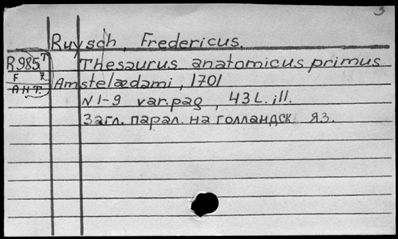 3
Ruysch, Fredericus.
R985 T Thesaurus anatomicus primus
F R Amstelædami, 1701
АНТ.
N 1-9 var.pag, 43 L. ill.
Загл. парал. на голландск. яз.